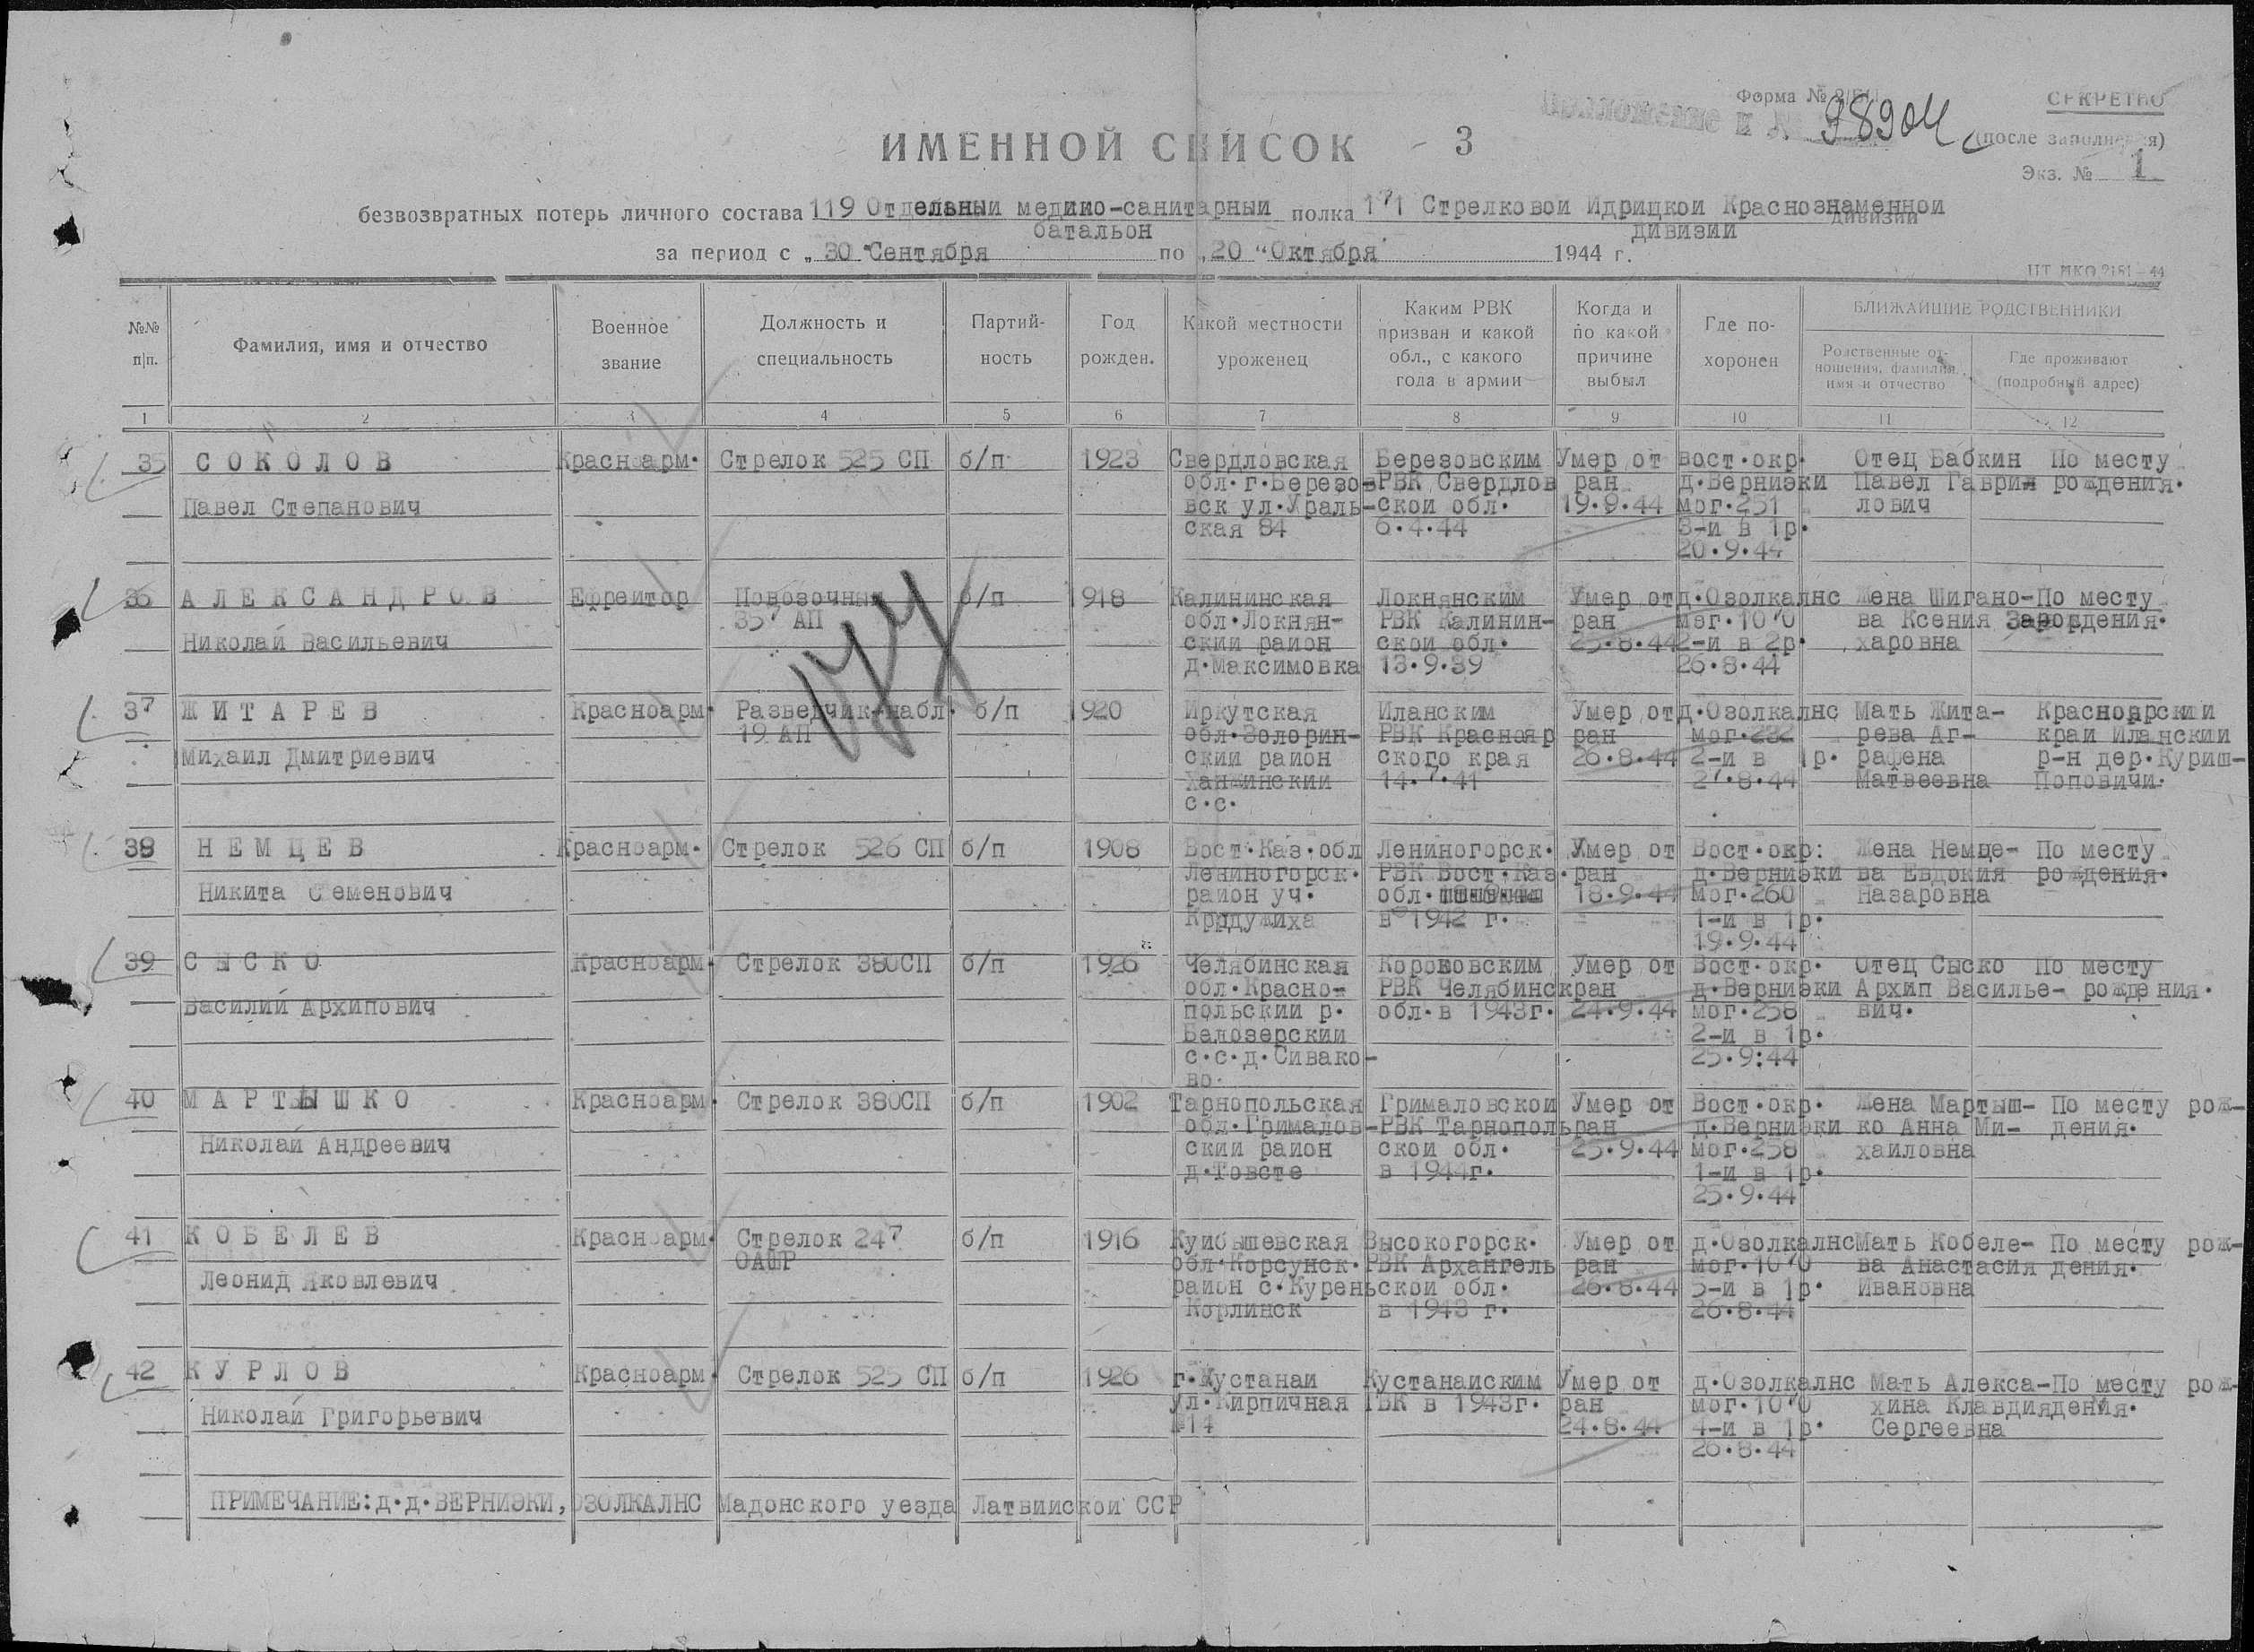 Форма №
СЕКРЕТНО
приложение к № 38904
(после заполнения)
ИМЕННОЙ СПИСОК - 3
Экз. № 1
безвозвратных потерь личного состава 119 Отдельныи медико-санитарныи полка 171 Стрелковои Идрицкои Краснознаменнои
батальон дивизии дивизии
за период с „ 30 “ Сентября по „ 20 “ Октября 1944 г.
№№ п/п.
Фамилия, имя и отчество
Военное звание
Должность и специальность
Партий-
ность
Год рожден.
Какой местности уроженец
Каким РВК
призван и какой
обл., с какого
года в армии
Когда и
по какой
причине
выбыл
Где по-
хоронен
БЛИЖАЙШИЕ РОДСТВЕННИКИ
Родственные от-
ношения, фамилия,
имя и отчество
Где проживают
(подробный адрес)
1 2 3 4 5 6 7 8 9 10 11 12
35 СОКОЛОВ Красноарм. Стрелок 525 СП б/п 1923 Свердловская Березовским Умер от вост.окр. Отец Бабкин По месту
обл.г.Березо- РВК Свердлов ран д.Верниэки Павел Гаври- рождения.
Павел Степанович вск ул.Ураль- скои обл. 19.9.44 мог.251 лович
ская 84 6.4.44 3-и в 1р.
20.9.44
36 АЛЕКСАНДРОВ Ефреитор Повозочныи б/п 1918 Калининская Локнянским Умер от д.Озолкалнс Жена Шигано- По месту
357 АП обл.Локнян- РВК Калинин- ран мог.1070 ва Ксения За- рождения.
Николай Васильевич скии раион скои обл. 25.8.44 2-и в 2р. харовна
д.Максимовка 13.9.39 26.8.44
177
37 ЖИТАРЕВ Красноарм. Разведчик-набл. б/п 1920 Иркутская Иланским Умер от д.Озолкалнс Мать Жита- Красноярскии
19 АП обл.Золорин- РВК Краснояр ран мог.232 рева Аг- краи Иланскии
Михаил Дмитриевич скии раион ского края 26.8.44 2-и в 1р. рафена р-н дер.Куриш-
Ханжинскии 14.7.41 27.8.44 Матвеевна Поповичи.
с.с.
38 НЕМЦЕВ Красноарм. Стрелок 526 СП б/п 1908 Вост.Каз.обл Лениногорск. Умер от Вост.окр: Жена Немце- По месту
Лениногорск. РВК Вост.Каз. ран д.Верниэки ва Евдокия рождения.
Никита Семенович раион уч. обл. 18.9.44 мог.260 Назаровна
в 1942 г. 1-и в 1р.
19.9.44
39 СЫСКО Красноарм. Стрелок 380СП б/п 1926 Челябинская Умер от Вост.окр. Отец Сыско По месту
обл.Красно- РВК Челябинск ран д.Верниэки Архип Василье- рождения.
Василий Архипович польскии р. обл.в 1943г. 24.9.44 мог.258 вич.
Белозерскии 2-и в 1р.
с.с.д.Сивако- 25.9:44
во.
40 МАРТЫШКО Красноарм. Стрелок 380СП б/п 1902 Тарнопольская Грималовскои Умер от Вост.окр. Жена Мартыш- По месту рож-
обл.Грималов- РВК Тарнополь ран д.Верниэки ко Анна Ми- дения.
Николай Андреевич скии раион скои обл. 25.9.44 мог.258 хаиловна
д.Товсте в 1944г. 1-и в 1р.
25.9.44
41 КОБЕЛЕВ Красноарм. Стрелок 247 б/п 1916 Куибышевская Высокогорск. Умер от д.Озолкалнс Мать Кобеле- По месту рож-
обл.Корсунск. РВК Архангель ран мог.1070 ва Анастасия дения.
Леонид Яковлевич раион с.Курень скои обл. 26.8.44 5-и в 1р. Ивановна
Корлинск в 1943 г. 26.8.44
42 КУРЛОВ Красноарм. Стрелок 525 СП б/п 1926 г.Кустанаи Кустанаиским Умер от д.Озолкалнс Мать Алекса- По месту рож-
ул.Кирпичная ГВК в 1943г. ран мог.1070 хина Клавдия дения.
Николай Григорьевич №14 24.8.44 4-и в 1р. Сергеевна
26.8.44
ПРИМЕЧАНИЕ: д.д.ВЕРНИЭКИ, ОЗОЛКАЛНС Мадонского уезда Латвиискои ССР